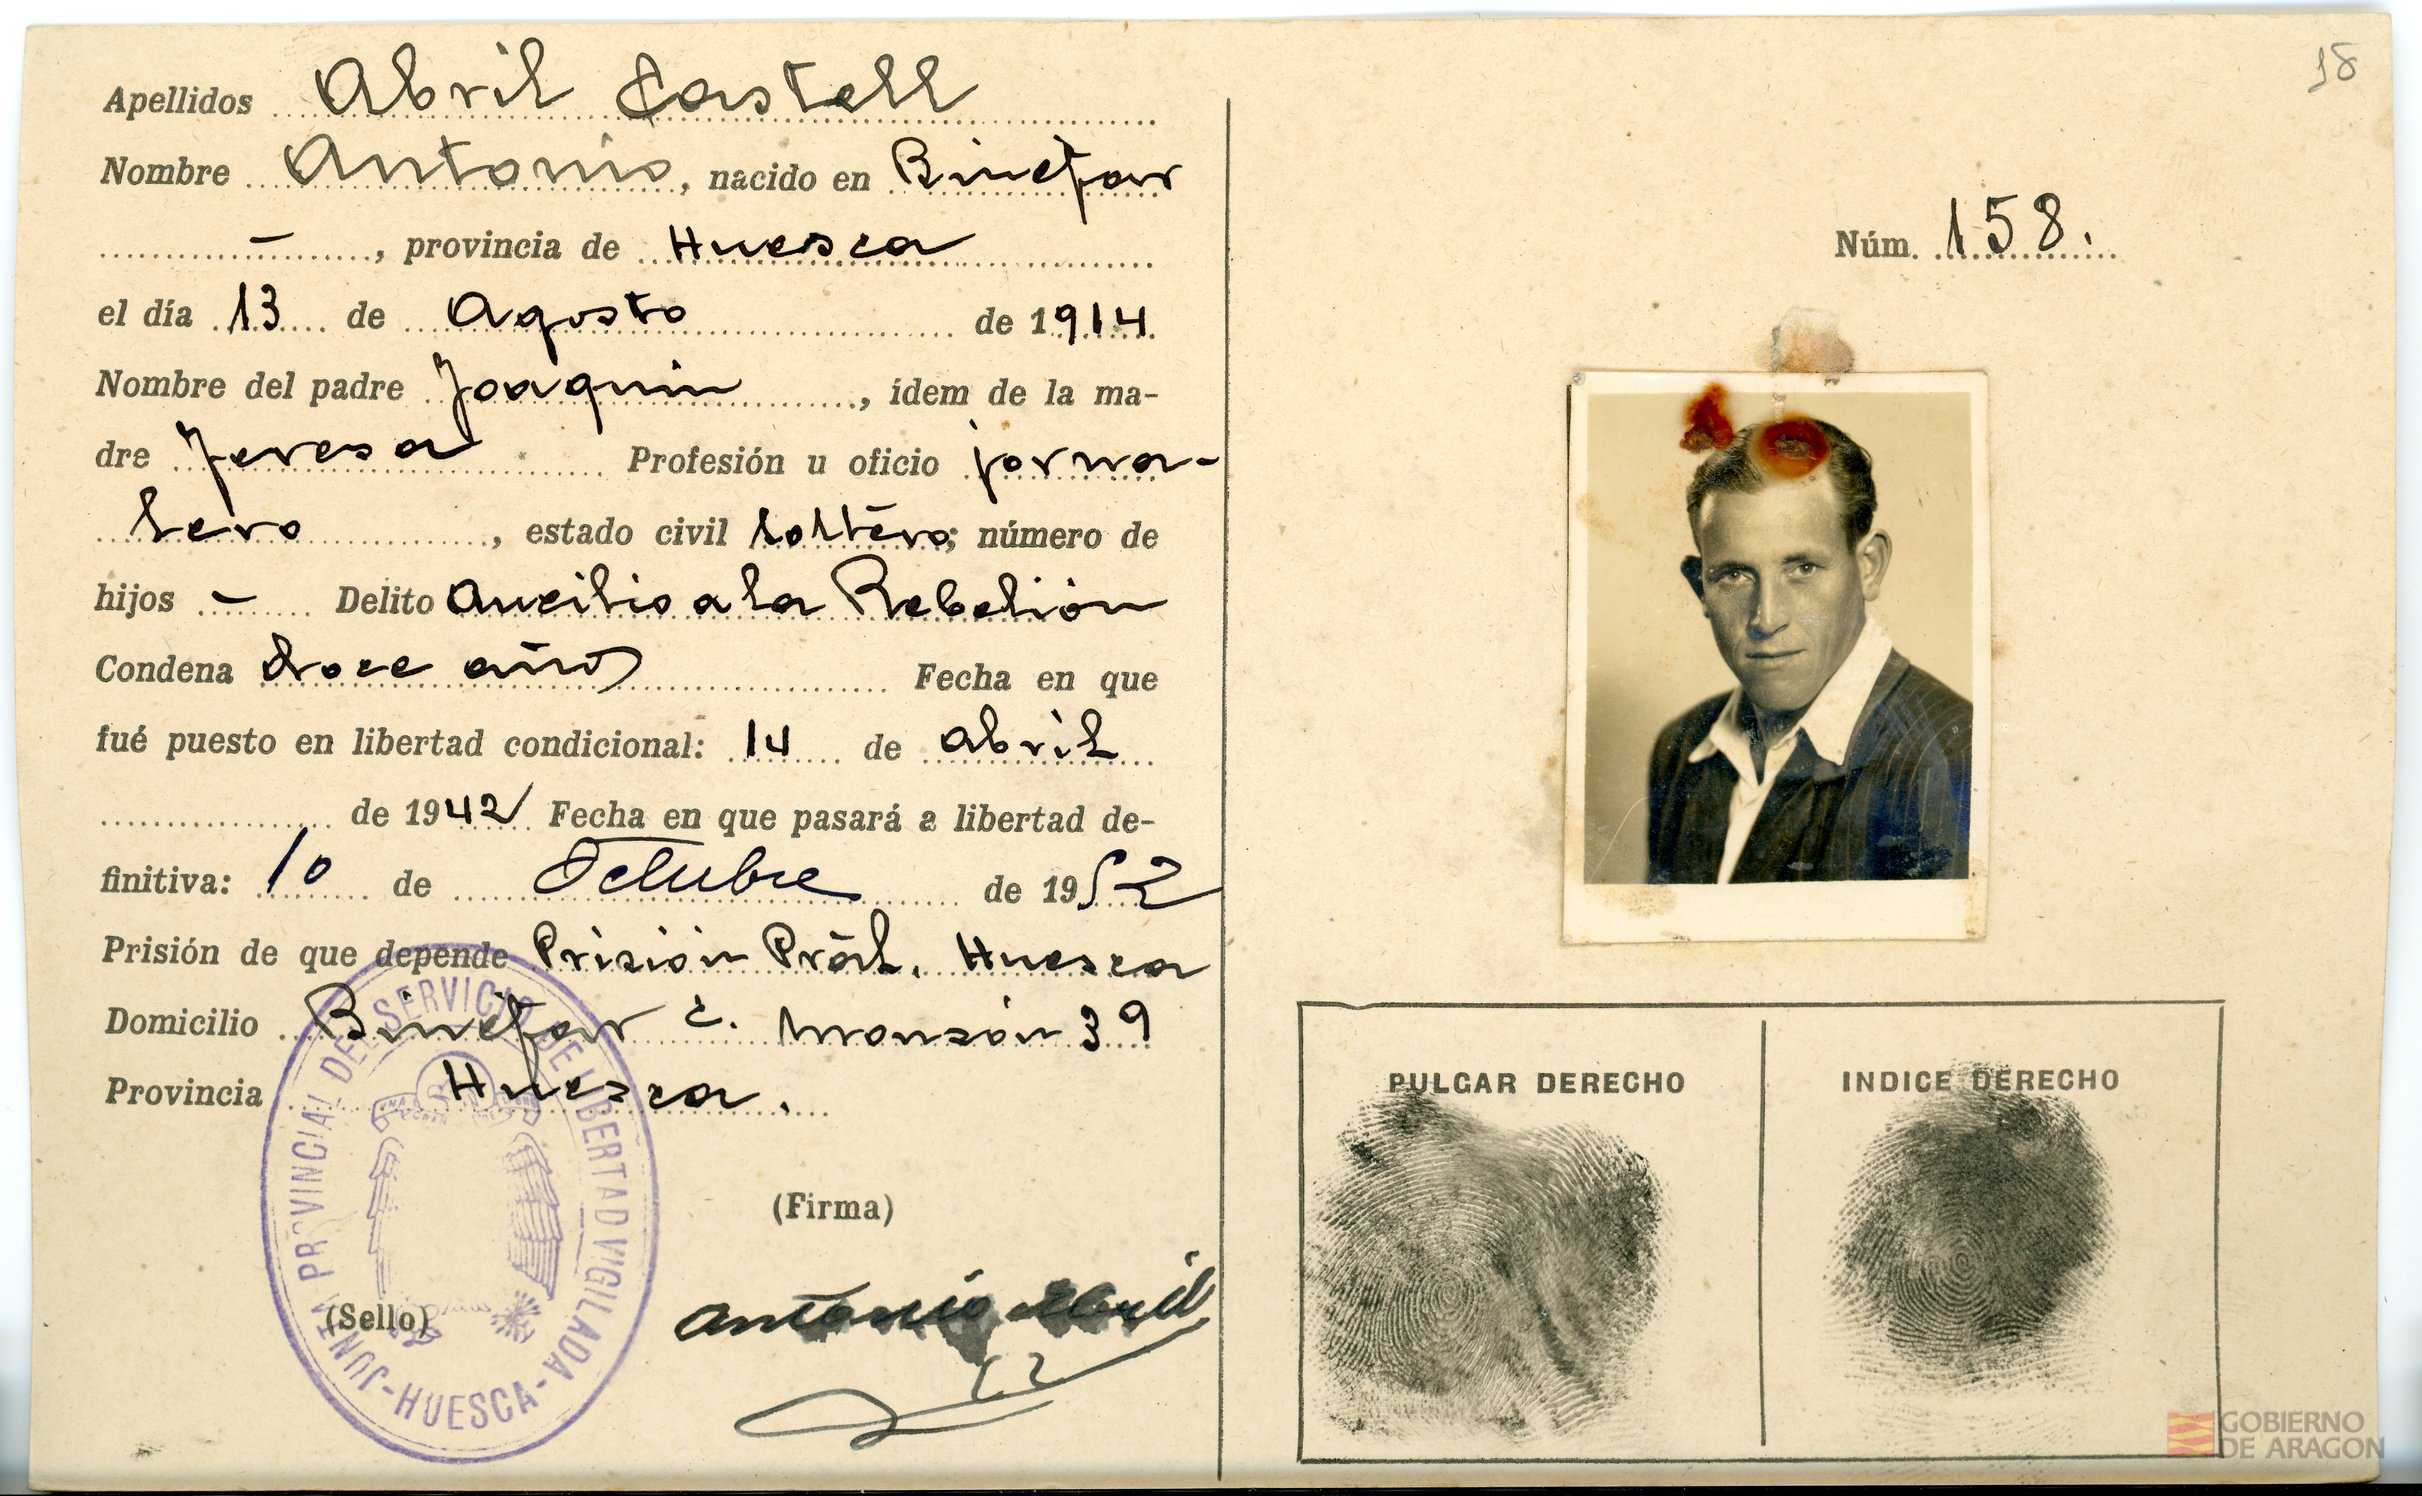 Apellidos Abril Castell
Nombre Antonio, nacido en Binefar
-, provincia de Huesca
el día 13 de Agosto de 1914
Nombre del padre Joaquin, ídem de la ma-
dre Teresa Profesión u oficio jorna-
lero, estado civil soltero; número de
hijos - Delito Auxilio a la Rebelión
Condena doce años Fecha en que
fué puesto en libertad condicional: 14 de abril
de 1942 Fecha en que pasará a libertad de-
finitiva: 10 de Octubre de 1952
Prisión de que depende Prisión Provl. Huesca
Domicilio Binefar c. Monzón 39
Provincia Huesca.
(Firma)
(Sello)
Antonio Abril
JUNTA PROVINCIAL DEL SERVICIO DE LIBERTAD VIGILADA
-HUESCA-
18
Núm. 158.
PULGAR DERECHO
INDICE DERECHO
GOBIERNO
DE ARAGON